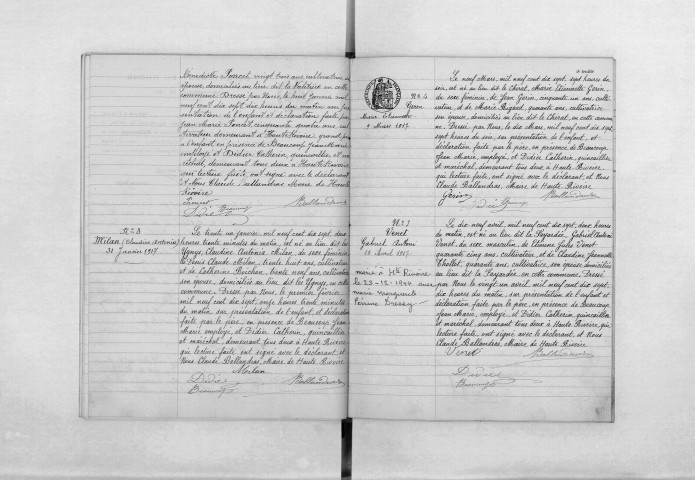 Bénédicte Poncet, vingt trois ans, cultivatrice, son
épouse, domiciliés au lieu dit la Valetière en cette
commune. Dressé par Nous, le huit Janvier mil
neuf cent dix sept, dix heures du matin, sur pré-
sentation de l'enfant et déclaration faite par
Jean Marie Poncet, cinquante quatre ans, cul-
tivateur demeurant à Haute Rivoire, grand père
de l'enfant, en présence de Beaucoup Jean Marie
employé et Didier Catherin, quincaillier et ma-
réchal, demeurant tous deux à Haute Rivoire qui
lecture faite ont signé avec le déclarant
et Nous Claude Ballandras Maire de Haute
Rivoire
Poncet
Ballandras
Didier Beaucoup
N° 3
Milan (Claudine Antonia)
31 Janvier 1917
Le trente un janvier, mil neuf cent dix sept, deux
heures trente minutes du matin, est né au lieu dit les
Claudine Antonia Milan, de sexe féminin
de Denis Claude Milan, trente huit ans, cultivateur
et de Catherine trente neuf ans, cultivatrice
son épouse, domiciliés au lieu dit les en cette
commune. Dressé par Nous, le premier février
mil neuf cent dix sept, onze heures trente minutes
du matin, sur présentation de l'enfant, et déclaration
faite par le père, en présence de Beaucoup Jean
Marie employé, et Didier Catherin, quincaillier
et maréchal, demeurant tous deux à Haute Rivoire,
qui lecture faite, ont signé avec le déclarant, et
Nous Claude Ballandras, Maire de Haute Rivoire
Milan
Didier
Ballandras
Beaucoup
N° 4
Gerin
Marie Etiennette
9 Mars 1917
Le neuf Mars, mil neuf cent dix sept, sept heures du
soir, est né au lieu dit le Chirat, Marie Etiennette Gerin
de sexe féminin, de Jean Gerin, cinquante un ans, culti-
vateur, et de Marie Rigaud, quarante ans, cultivatrice
son épouse, domiciliés au lieu dit le Chirat, en cette commu-
ne. Dressé par Nous, le dix Mars, mil neuf cent dix sept
sept heures du soir, sur présentation de l'enfant, et
déclaration faite par le père, en présence de Beaucoup
Jean Marie, employé, et Didier Catherin, quincaillier
et maréchal, demeurant tous deux à Haute Rivoire,
qui lecture faite, ont signé avec le déclarant, et Nous
Claude Ballandras, Maire de Haute Rivoire
Gerin
Ballandras
Didier Beaucoup
N° 5
Venet
Gabriel Antoni
19 Avril 1917
marié à Hte Rivoire
le 23-12-1944 avec
Marie Marguerite
Perrine Bressy
Le dix neuf avril, mil neuf cent dix sept, deux heures
du matin, est né au lieu dit la Payardée, Gabriel Antoni
Venet, de sexe masculin, de Etienne Jules Venet
quarante cinq ans, cultivateur, et de Claudine Jeannette
quarante ans, cultivatrice, son épouse, domiciliés
au lieu dit la Payardée, en cette commune. Dressé
par Nous, le vingt un avril, mil neuf cent dix sept
dix heures du matin, sur présentation de l'enfant et
déclaration faite par le père, en présence de Beaucoup
Jean Marie, employé, et Didier Catherin, quincaillier
et maréchal, demeurant tous deux à Haute Rivoire, qui
lecture faite, ont signé avec le déclarant, et Nous
Claude Ballandras, Maire de Haute Rivoire
Venet
Ballandras
Didier
Beaucoup